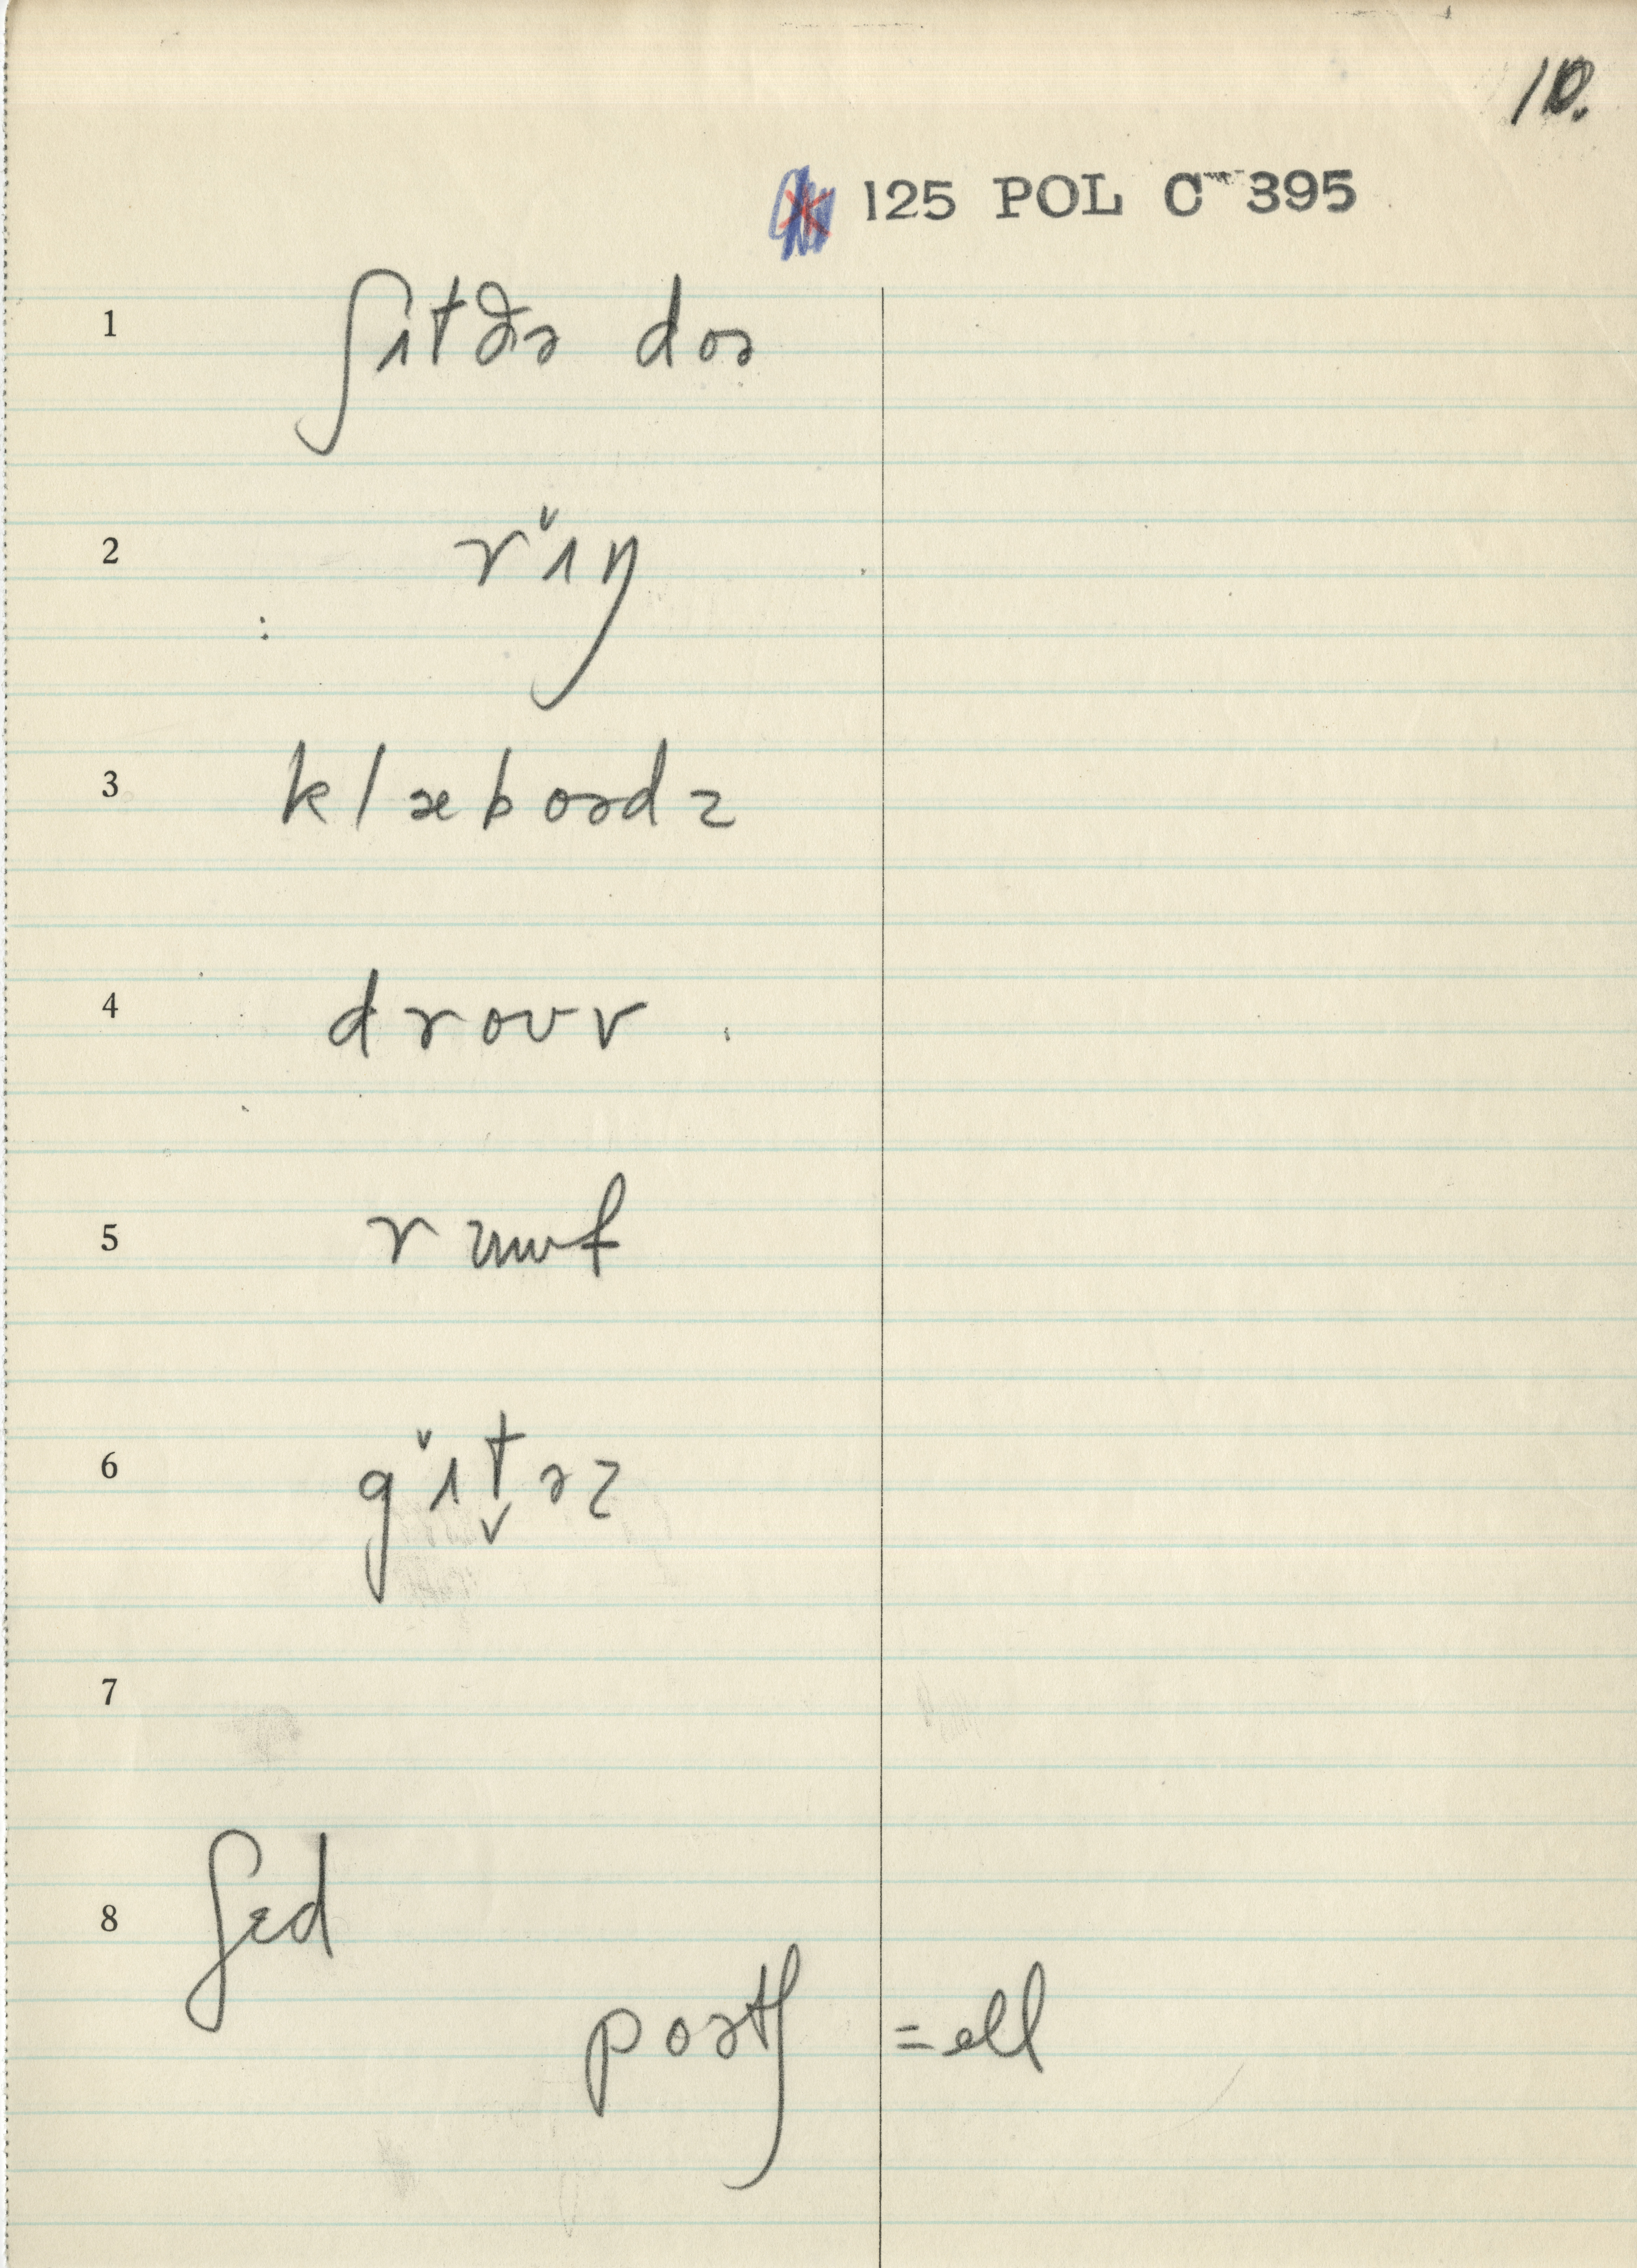 10.
125 POL C 395
1 ʃɪtðə doə
2 rˇɪŋ
3 klæboədz
4 droʊv
5 rɯʊf
6 gˇɪt̬əz
7
8 ʃɛd
poətʃ =ell